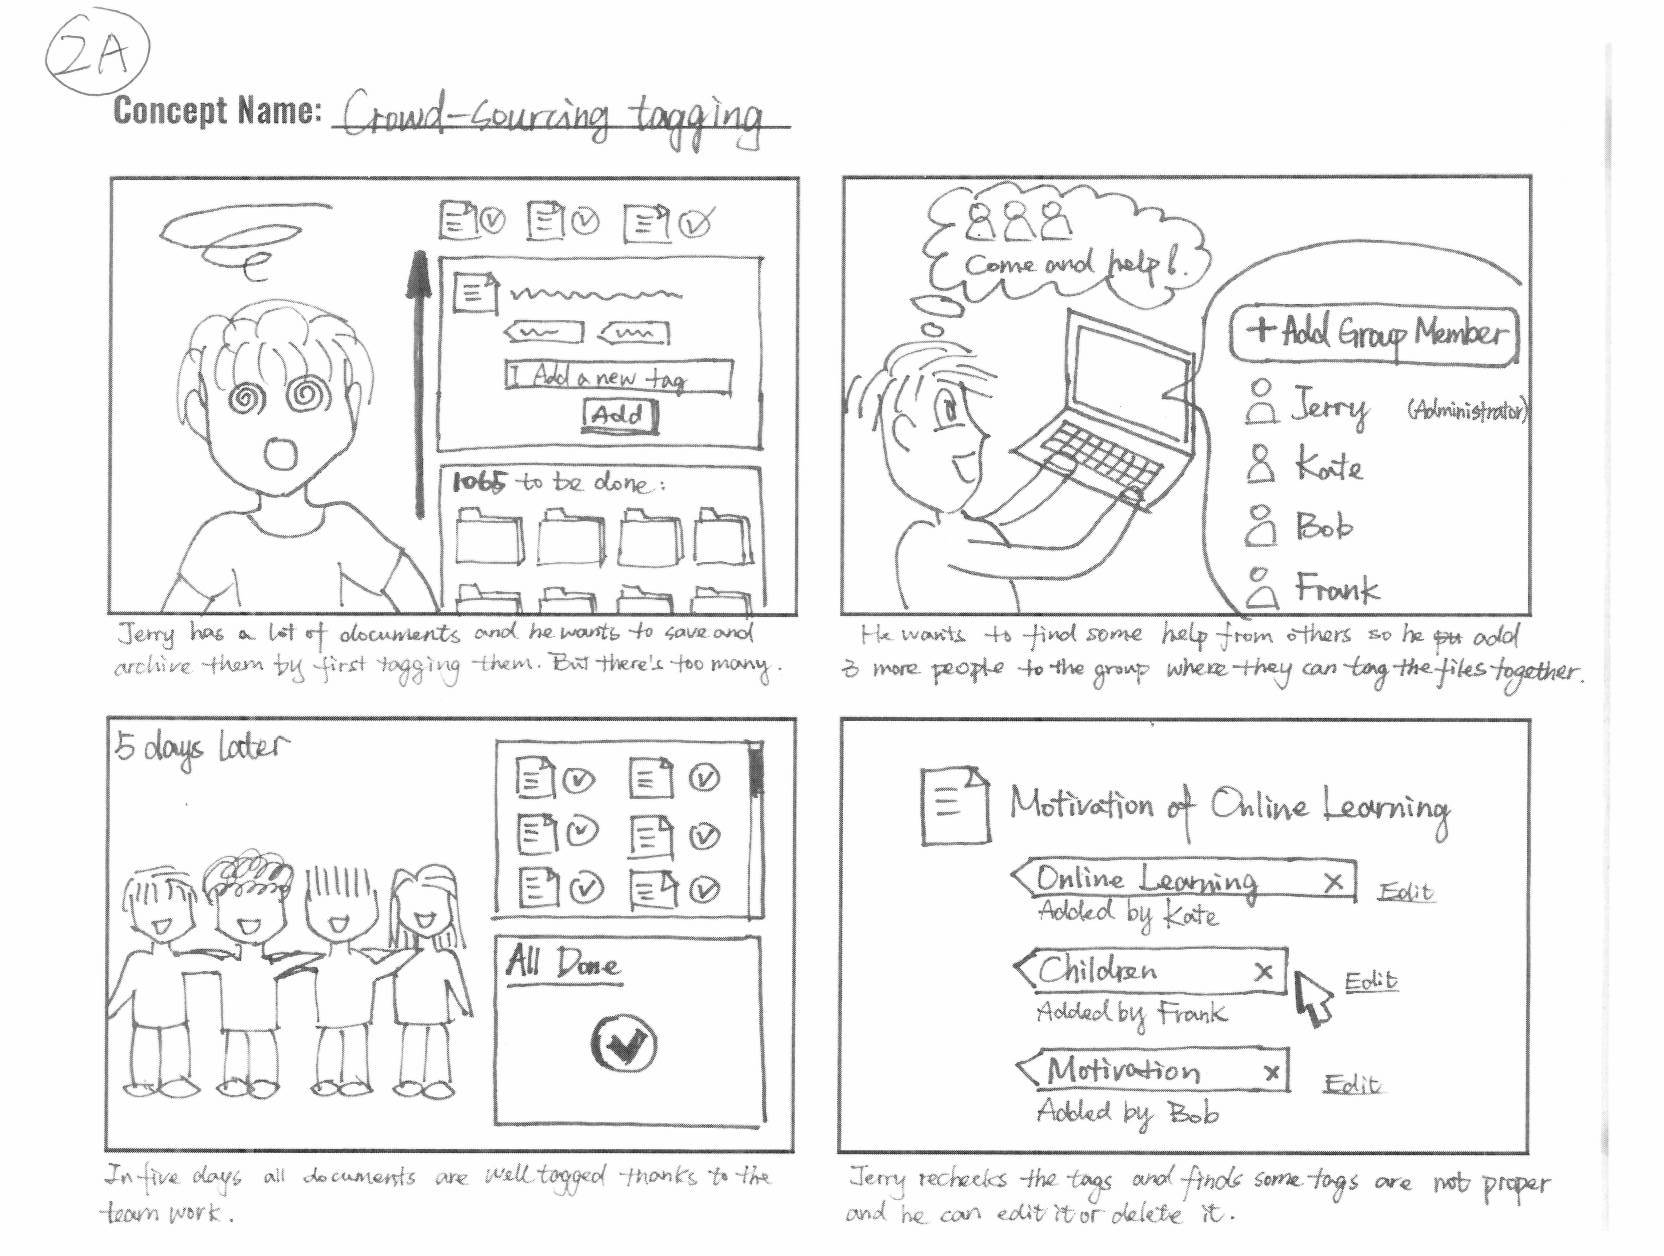 2A
Concept Name: Crowd-sourcing tagging
I Add a new tag
Add
1065 to be done:
Jerry has a lot of documents and he wants to save and
archive them by first tagging them. But there's too many.
Come and help!
+ Add Group Member
Jerry (Administrator)
Kate
Bob
Frank
He wants to find some help from others so he add
3 more people to the group where they can tag the files together.
5 days later
All Done
In five days all documents are well tagged thanks to the
team work.
Motivation of Online Learning
Online Learning x Edit
Added by Kate
Children x Edit
Added by Frank
Motivation x Edit
Added by Bob
Jerry rechecks the tags and finds some tags are not proper
and he can edit it or delete it.